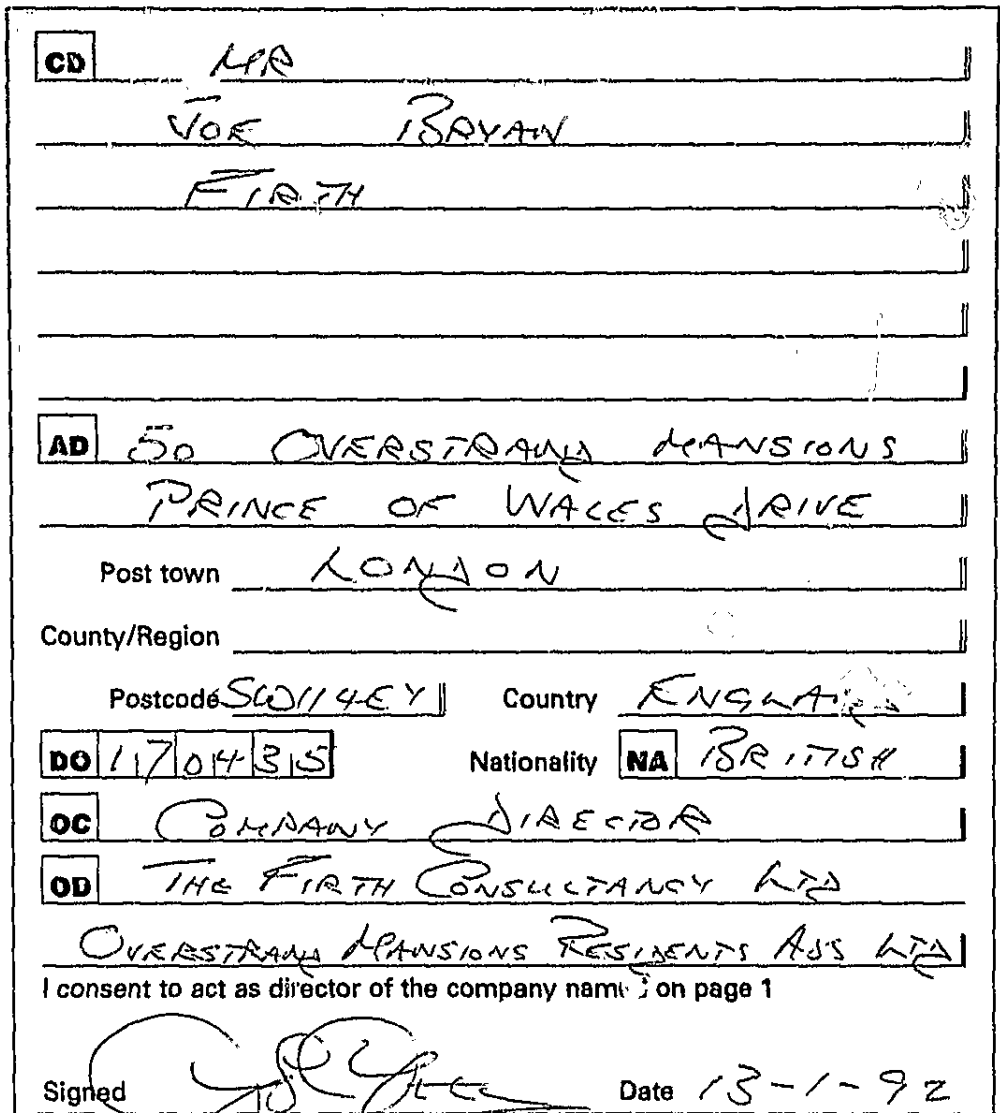 CD MR
JOE BRYAN
FIRTH
AD 50 OVERSTRAND MANSIONS
PRINCE OF WALES DRIVE
Post town LONDON
County/Region
Postcode SW11 4EY Country ENGLAND
DO 17 04 35 Nationality NA BRITISH
OC COMPANY DIRECTOR
OD THE FIRTH CONSULTANCY LTD
OVERSTRAND MANSIONS RESIDENTS ASS LTD
I consent to act as director of the company named on page 1
Signed Date 13-1-92